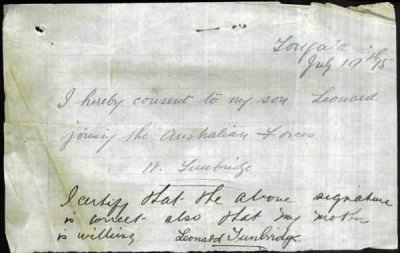 July 19th/15
I hereby consent to my son Leonard
joining the Australian Forces
W. Tunbridge
I certify that the above signature
is correct also that my mother
is willing Leonard Tunbridge.